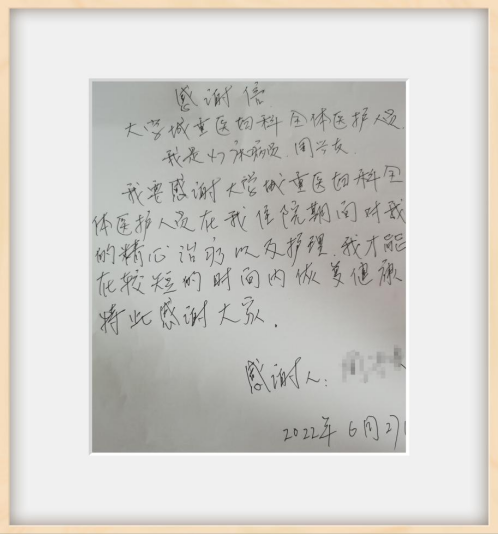 感谢信
大学城重医妇科全体医护人员
我是41床病员.周兴友.
我要感谢大学城重医妇科全
体医护人员在我住院期间对我
的精心治疗以及护理.我才能
在较短的时间内恢复健康
特此感谢大家.
感谢人:
2022年6月27